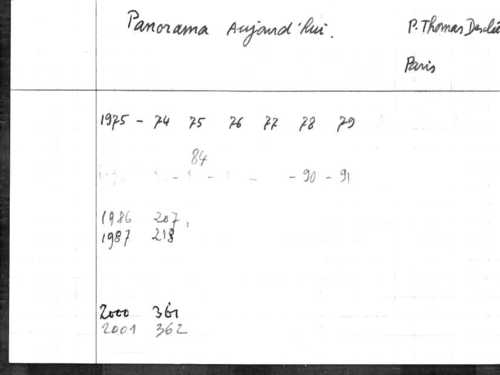 Panorama Aujourd'hui. P. Thomas
Paris
1975 - 74 75 76 77 78 79
84
- 90 - 91
1986 207
1987 218
2000 361
2001 362